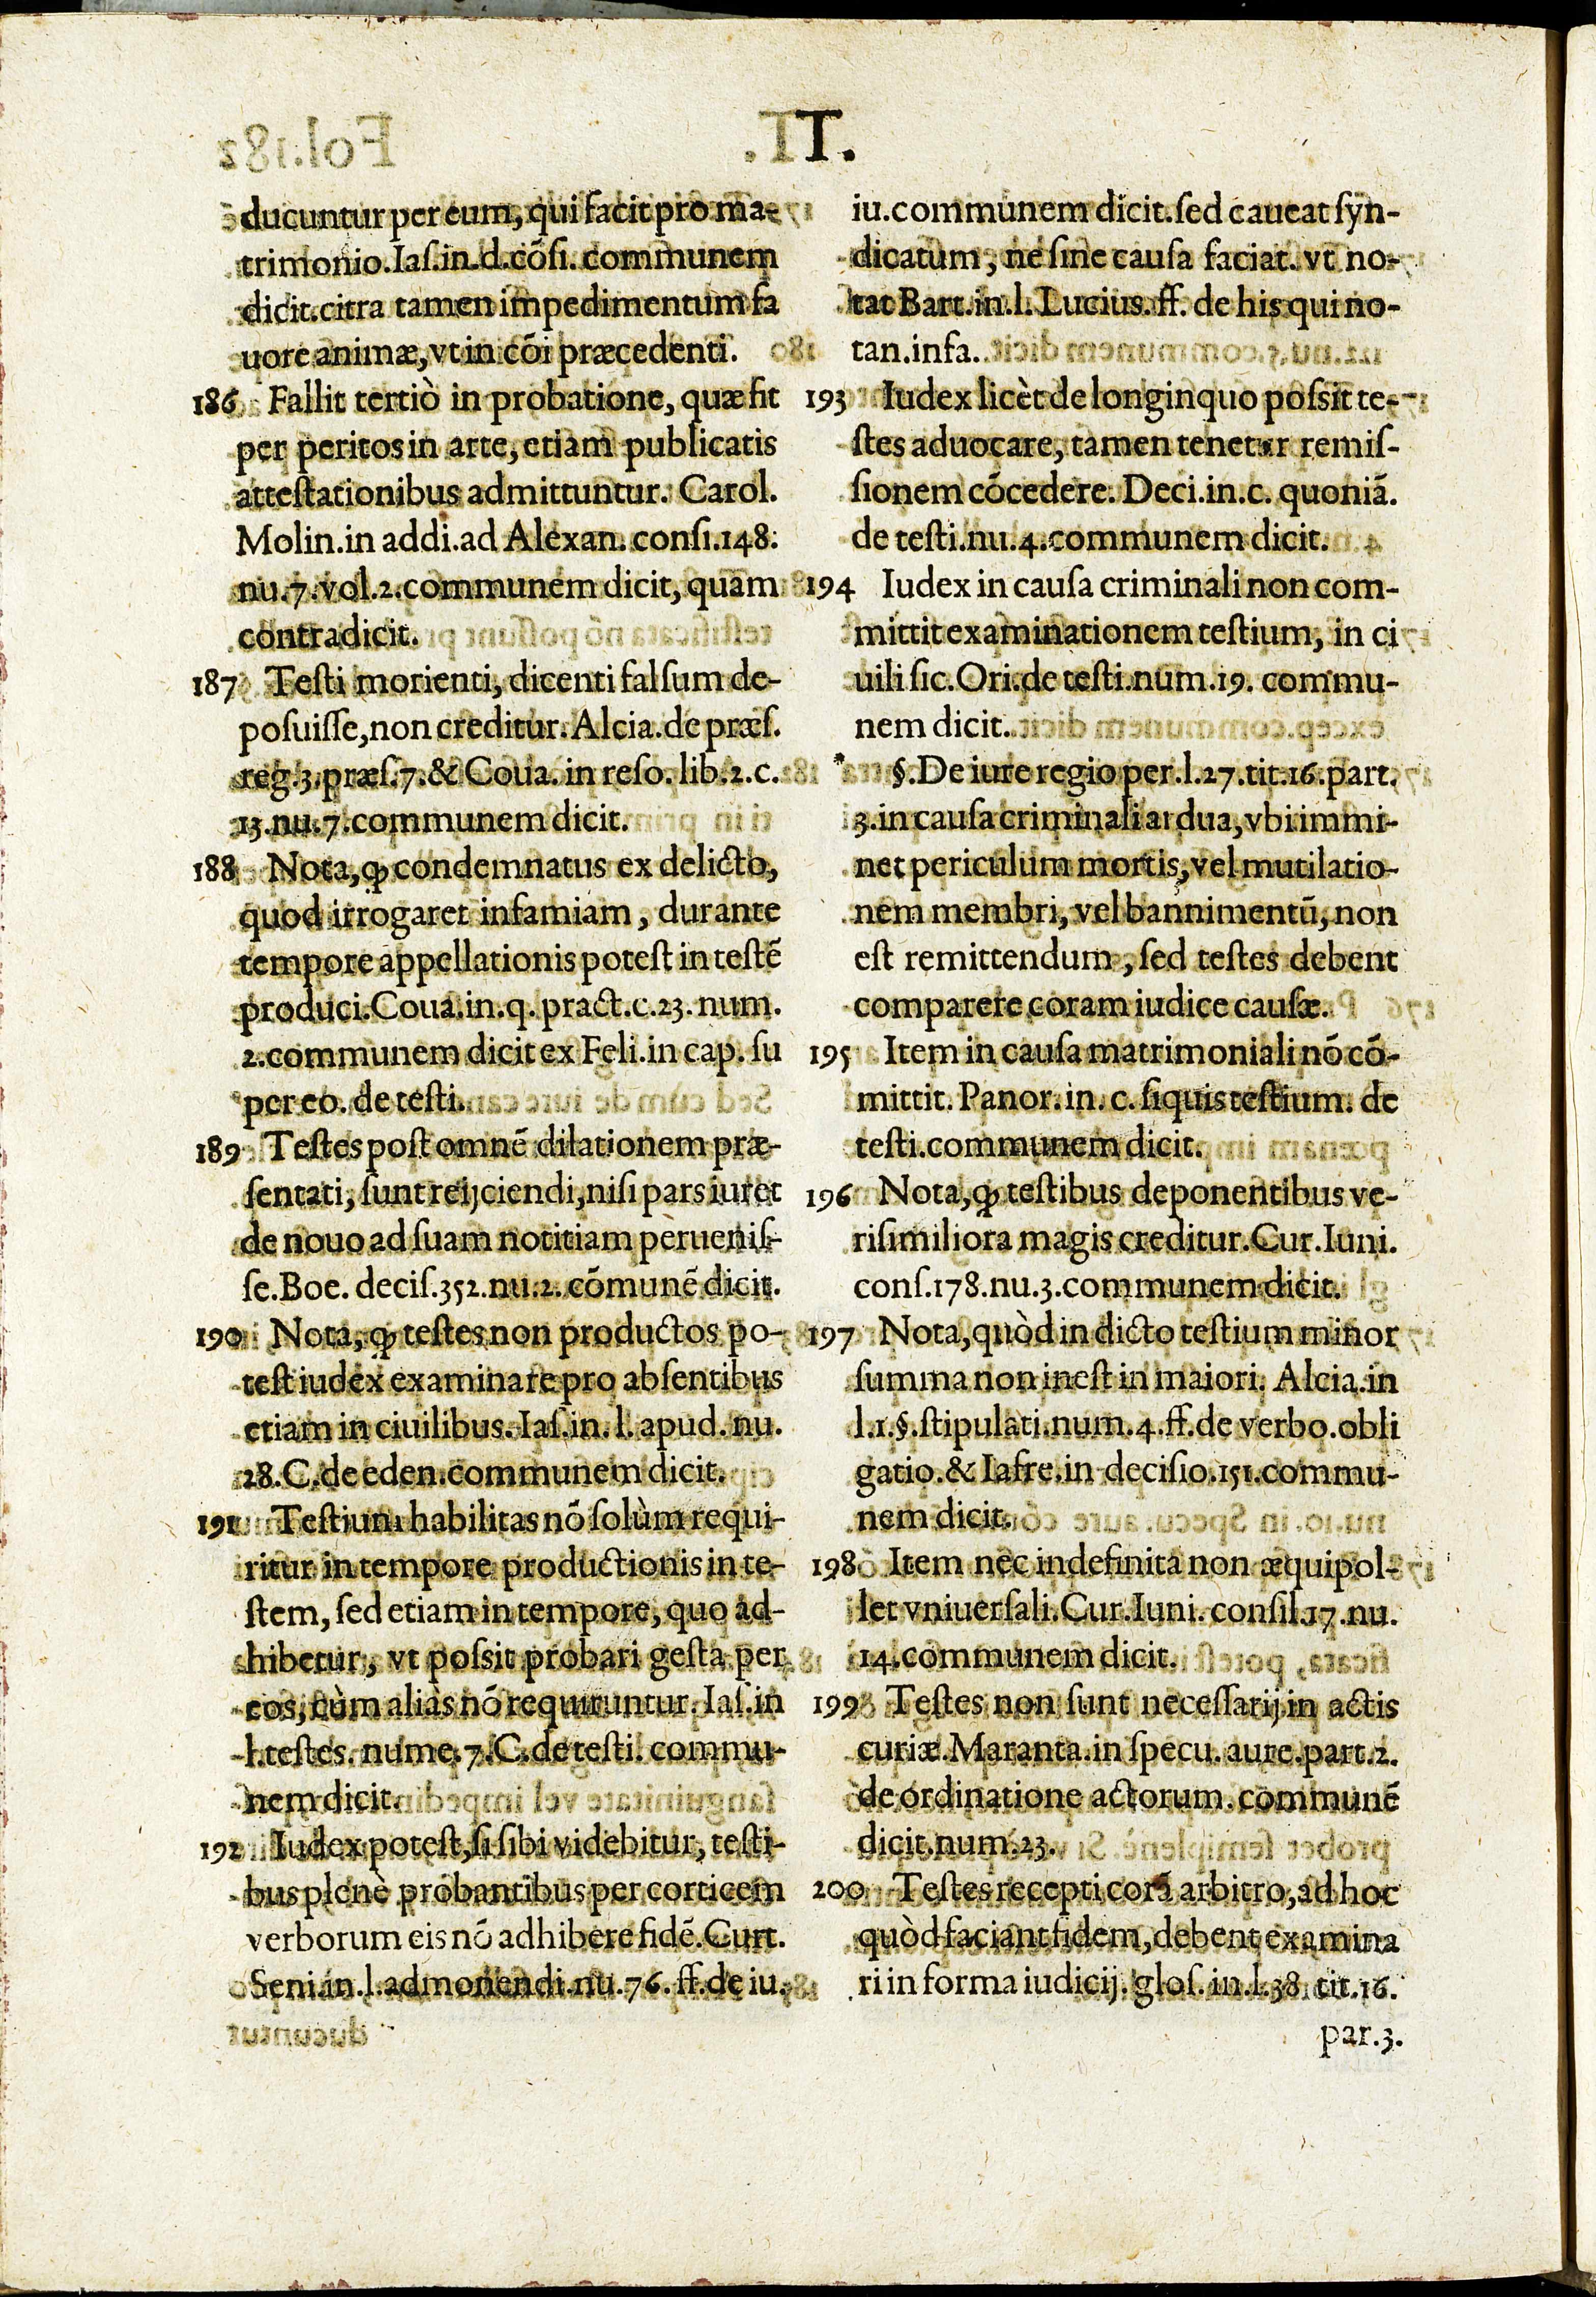 T.
ducuntur per eum, qui facit pro ma-
trimonio. Iaſ. in. d. cõſi. communem
dicit. citra tamen impedimentum fa
uore animæ, vt in cõi præcedenti.
186 Fallit tertiò in probatione, quæ fit
per peritos in arte, etiam publicatis
atteſtationibus admittuntur. Carol.
Molin. in addi. ad Alexan. conſi. 148.
nu. 7. vol. 2. communem dicit, quam
contradicit.
187 Teſti morienti, dicenti falſum de-
poſuiſſe, non creditur. Alcia. de præſ.
reg. 3. præſ. 7. & Coua. in reſo. lib. 2. c.
13. nu. 7. communem dicit.
188 Nota, ꝙ condemnatus ex delicto,
quod irrogaret infamiam, durante
tempore appellationis poteſt in teſtẽ
produci. Coua. in. q. pract. c. 23. num.
2. communem dicit ex Feli. in cap. ſu
per eo. de teſti.
189 Teſtes poſt omnẽ dilationem præ-
ſentati, ſunt reijciendi, niſi pars iuret
de nouo ad ſuam notitiam perueniſ-
ſe. Boe. deciſ. 352. nu. 2. cõmunẽ dicit.
190 Nota, ꝙ teſtes non productos po-
teſt iudex examinare pro abſentibus
etiam in ciuilibus. Iaſ. in. l. apud. nu.
28. C. de eden. communem dicit.
191 Teſtium habilitas nõ ſolùm requi-
ritur in tempore productionis in te-
ſtem, ſed etiam in tempore, quo ad-
hibetur, vt poſsit probari geſta per
eos, cùm aliàs nõ requiruntur. Iaſ. in
l. teſtes. nume. 7. C. de teſti. commu-
nem dicit.
192 Iudex poteſt, ſi ſibi videbitur, teſti-
bus plenè probantibus per corticem
verborum eis nõ adhibere fidẽ. Curt.
Seni. in. l. admonendi. nu. 76. ff. de iu.
iu. communem dicit. ſed caueat ſyn-
dicatum, ne ſine cauſa faciat. vt no-
tat Bart. in. l. Lucius. ff. de his qui no-
tan. infa.
193 Iudex licèt de longinquo poſsit te-
ſtes aduocare, tamen tenetur remiſ-
ſionem cõcedere. Deci. in. c. quoniã.
de teſti. nu. 4. communem dicit.
194 Iudex in cauſa criminali non com-
mittit examinationem teſtium, in ci
uili ſic. Ori. de teſti. num. 19. commu-
nem dicit.
* §. De iure regio per. l. 27. tit. 16. part.
3. in cauſa criminali ardua, vbi immi-
net periculum mortis, vel mutilatio-
nem membri, vel bannimentũ, non
eſt remittendum, ſed teſtes debent
comparere coram iudice cauſæ.
195 Item in cauſa matrimoniali nõ cõ-
mittit. Panor. in. c. ſiquis teſtium. de
teſti. communem dicit.
196 Nota, ꝙ teſtibus deponentibus ve-
riſimiliora magis creditur. Cur. Iuni.
conſ. 178. nu. 3. communem dicit.
197 Nota, quòd in dicto teſtium minor
ſumma non ineſt in maiori. Alcia. in
l. 1. §. ſtipulati. num. 4. ff. de verbo. obli
gatio. & Iafre. in deciſio. 151. commu-
nem dicit.
198 Item nec indefinita non æquipol-
let vniuerſali. Cur. Iuni. conſil. 17. nu.
14. communem dicit.
199 Teſtes non ſunt neceſſarij in actis
curiæ. Maranta. in ſpecu. aure. part. 2.
de ordinatione actorum. communẽ
dicit. num. 23.
200 Teſtes recepti corã arbitro, ad hoc
quòd faciant fidem, debent examina
ri in forma iudicij. gloſ. in. l. 38. tit. 16.
par. 3.